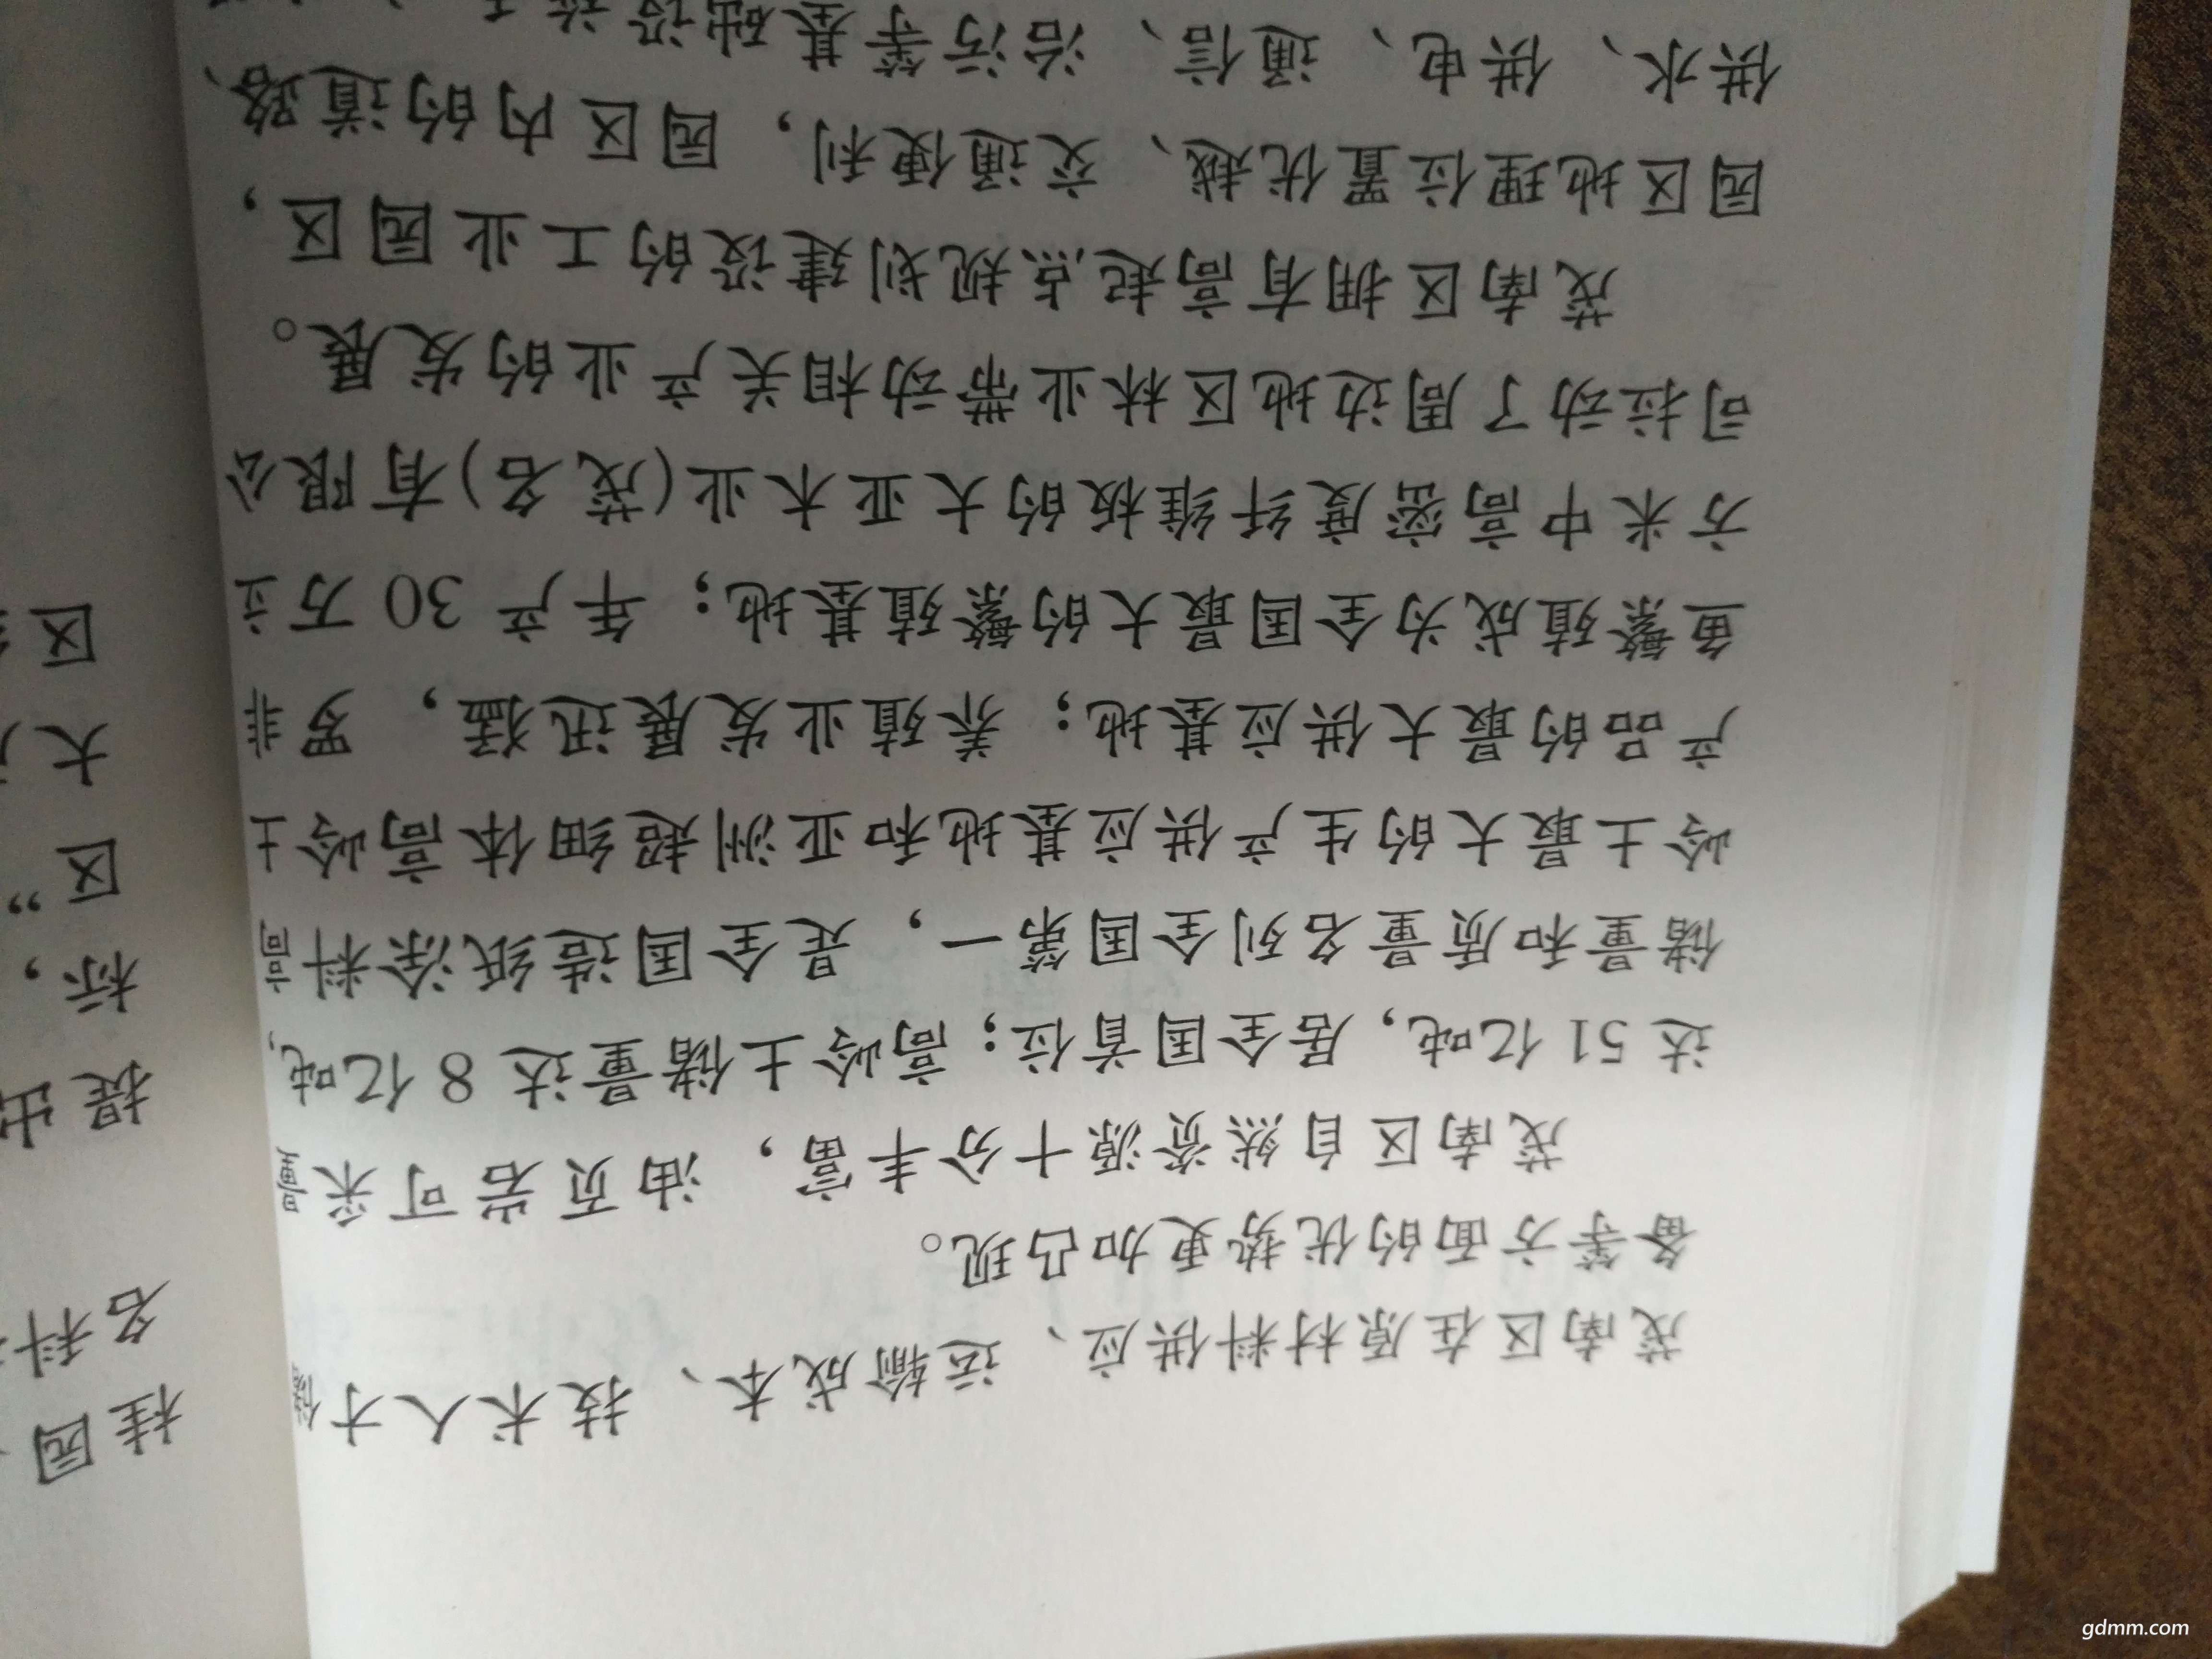 茂南区在原材料供应、运输成本、技术人才储
备等方面的优势更加凸现。
茂南区自然资源十分丰富，油页岩可采量
达 51 亿吨，居全国首位；高岭土储量达 8 亿吨，
储量和质量名列全国第一，是全国造纸涂料高
岭土最大的生产供应基地和亚洲超细体高岭土
产品的最大供应基地；养殖业发展迅猛，罗非
鱼繁殖成为全国最大的繁殖基地；年产 30 万立
方米中高密度纤维板的大亚木业(茂名)有限公
司拉动了周边地区林业带动相关产业的发展。
茂南区拥有高起点规划建设的工业园区，
园区地理位置优越、交通便利，园区内的道路、
供水、供电、通信、治污等基础设施
桂园
名科
提出
标，
区”
大
区
gdmm.com